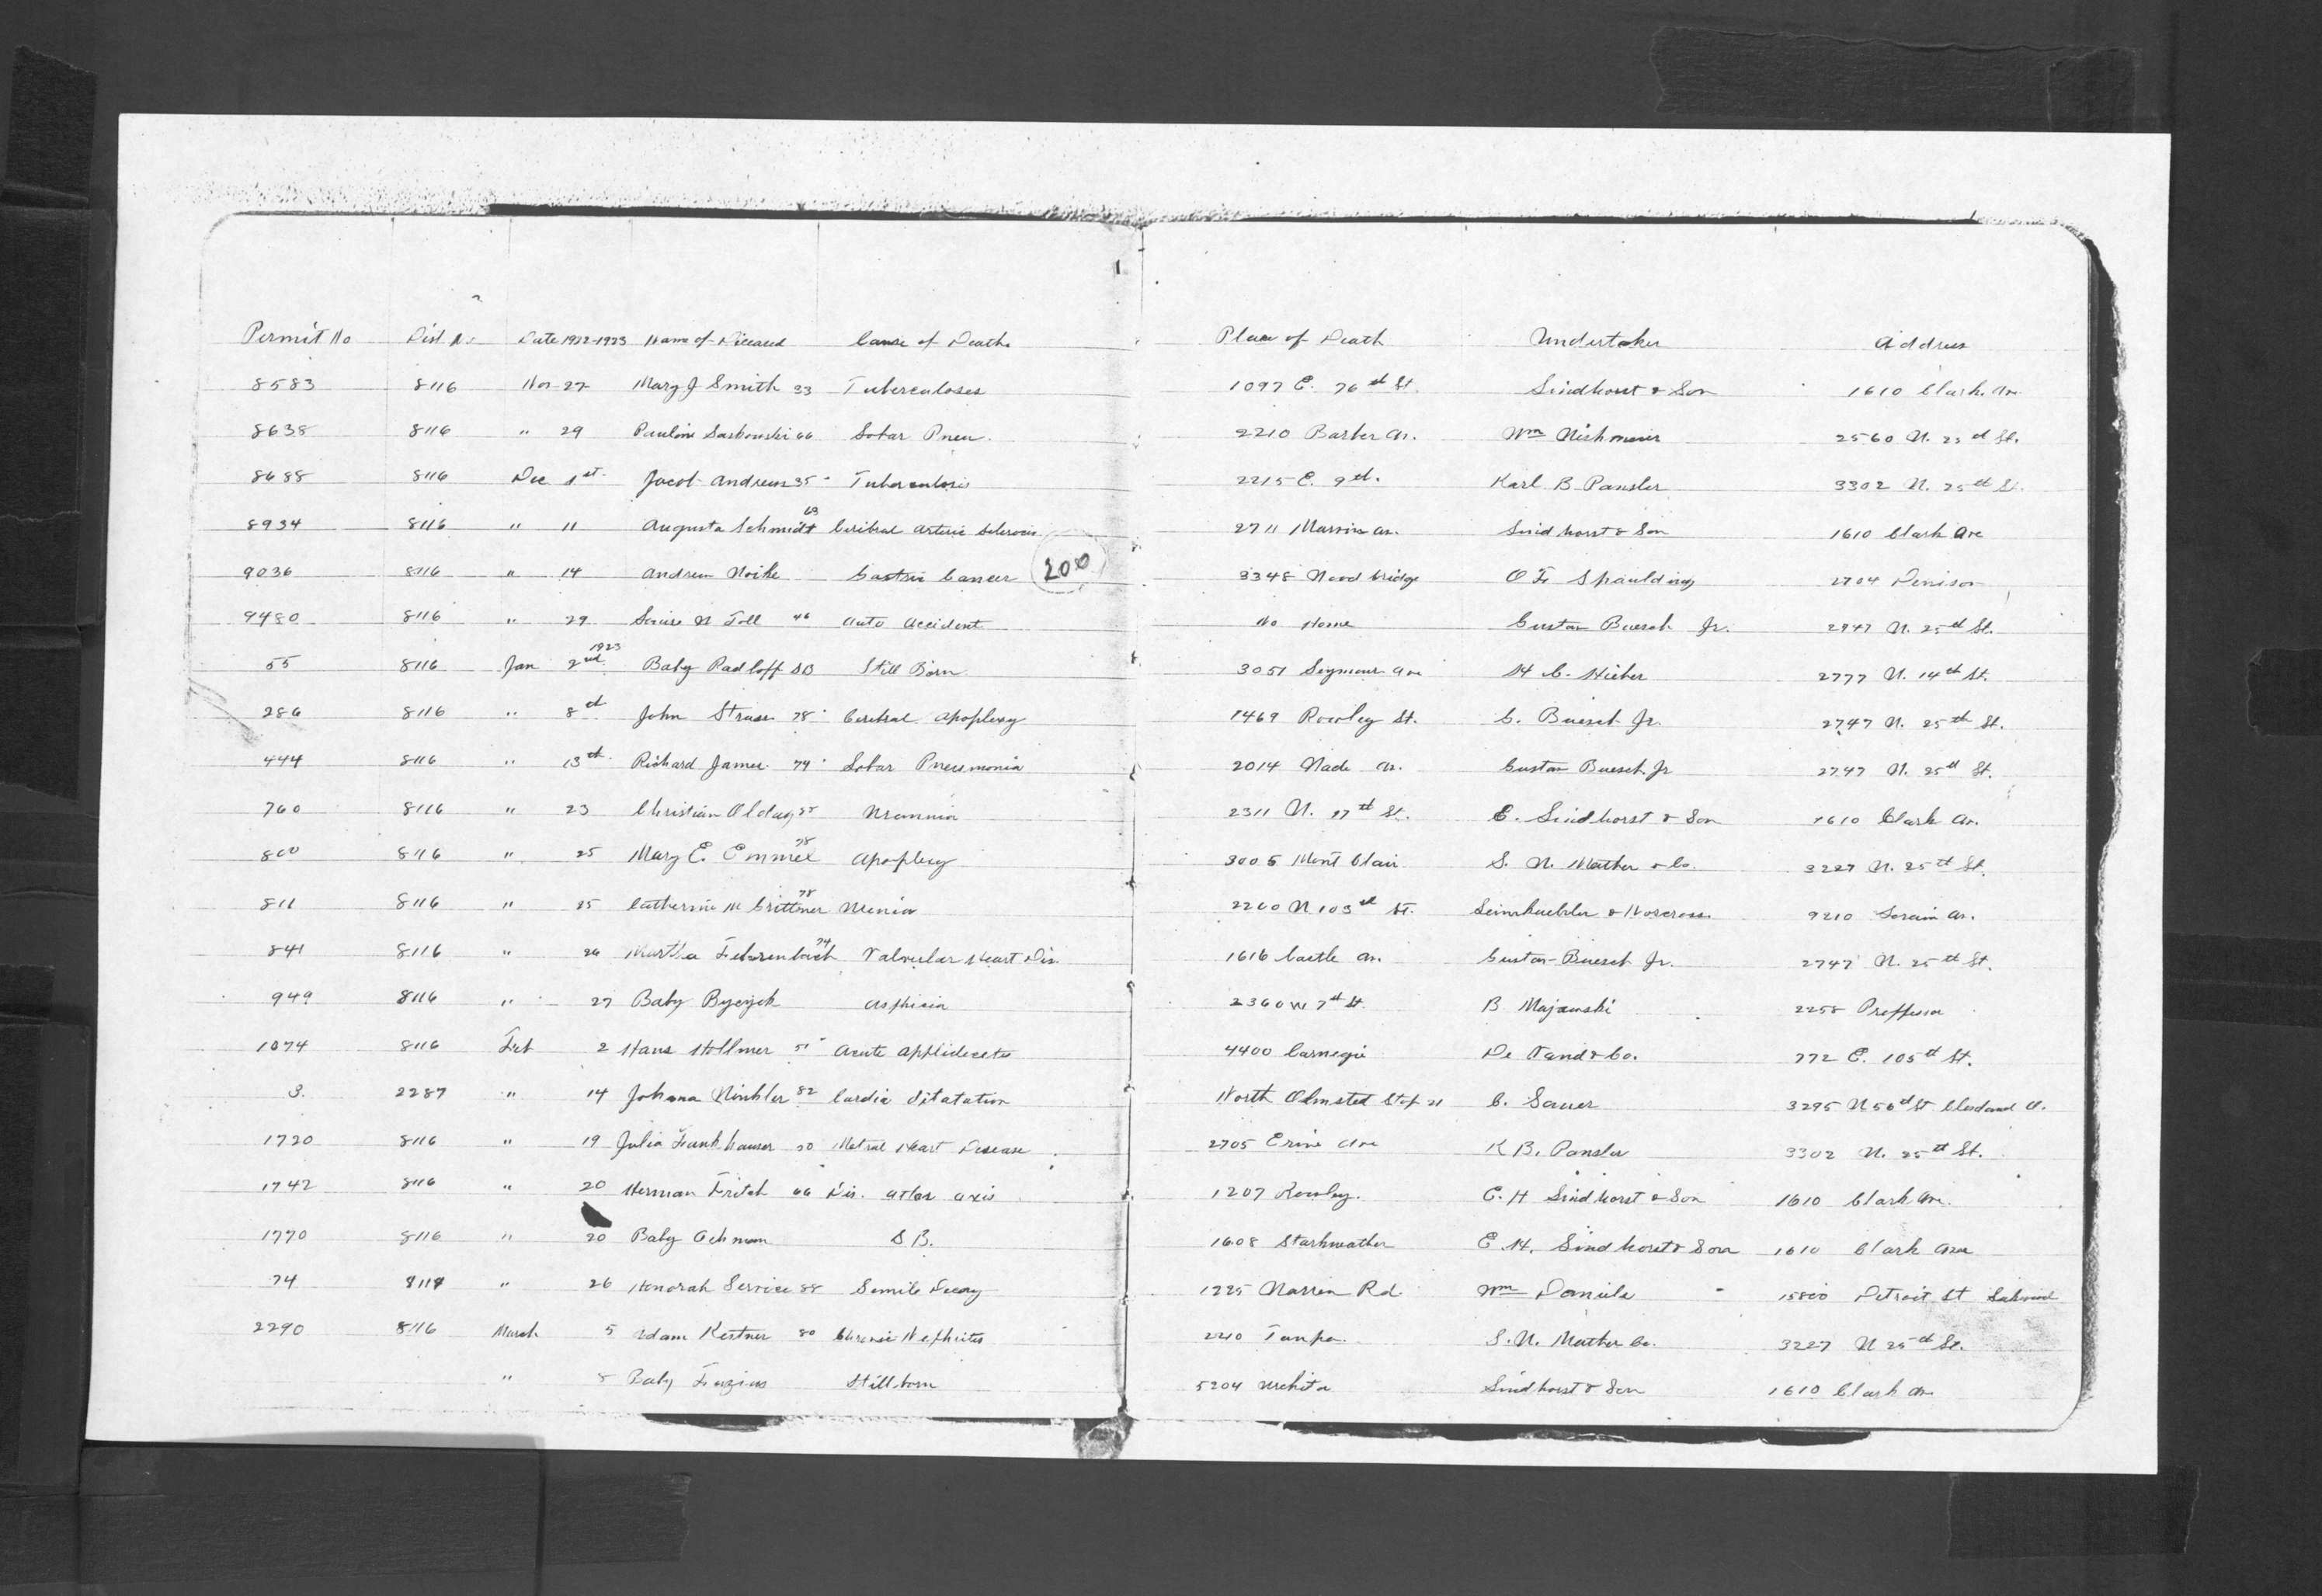 Permit No Dist No Date 1922-1923 Name of Diceased Cause of Death Place of Death Undertaker Address
8583 8116 Nov 27 Mary J Smith 33 Tuberculoses 1097 E. 76th St. Lindhorst & Son 1610 Clark Av
8638 8116 " 29 Pauline 66 Lobar Pneu. 2210 Barber Av. Wm 2560 W. 25th St.
8688 8116 Dec 1st Jacob Andrews 35 Tuberculosis 2215 E. 9th. Karl B. Pansler 3302 W. 25th St.
8934 8116 " 11 Augusta Schmidt 63 Ceribral Arterie Sclerosis 2711 Marvin Av. Lindhorst & Son 1610 Clark Ave
9036 8116 " 14 Andrew Gastric Cancer 200 3348 Woodbridge O F. Spaulding 2704 Denison
9480 8116 " 29 Louise W Toll 46 Auto Accident No Home Gustav Buesch Jr. 2747 W. 25th St.
55 8116 Jan 2nd 1923 Baby Radloff SB Still Born 3051 Seymour Ave H C. Hieber 2777 W. 14th St.
286 8116 " 8th John 78 Cerebral Apoplexy 1469 Rowley St. G. Buesch Jr. 2747 W. 25th St.
444 8116 " 13th Richard James 74 Lobar Pneumonia 2014 Wade Av. Gustav Buesch Jr 2747 W. 25th St.
760 8116 " 23 Christian Oldag Uremia 2311 W. 17th St. E. Lindhorst & Son 1610 Clark Av.
800 8116 " 25 Mary E. Emmel 78 Apoplexy 3005 Mont Clair S. W. Mather & Co. 3227 W. 25th St.
811 8116 " 25 Catherine M Grittner 78 2260 W 103rd St. 9210 Lorain Av.
841 8116 " 26 Martha Fehrenbach 74 Valvular Heart Dis. 1616 Castle Av. Gustav Buesch Jr. 2747 W. 25th St.
949 8116 " 27 Baby Asphixia 2360 W 7th St. B Majewski 2258 Proffesser
1074 8116 Feb 2 Hans Hollmer 51 Acute 4400 Carnegie De Vand & Co. 772 E. 105th St.
3. 2287 " 14 Johana Winkler 82 Cardic Ditatation North Olmsted Stop 21 C. Sauer 3295 W 56th St Cleveland O.
1720 8116 " 19 Julia Funkhauser 50 Metral Heart Disease 2705 Erin Ave K B. Pansler 3302 W. 25th St.
1742 8116 " 20 Herman Fritch 66 Dis. atlas axis 1207 Rowley. E. H Lindhorst & Son 1610 Clark Ave.
1770 8116 " 20 Baby S B. 1608 Starkweather E. H. Lindhorst & Son 1610 Clark Ave
74 8117 " 26 Honorah Service 88 Semile Decay 1225 Warren Rd. Wm Daniels 15800 Detroit St Lakewood
2290 8116 March 5 Adam Kestner 80 Chronic Nephrites 2210 Tampa. S. W. Mather Co. 3227 W 25th St.
" 8 Baby Stillborn 5204 Wichita Lindhorst & Son 1610 Clark Av